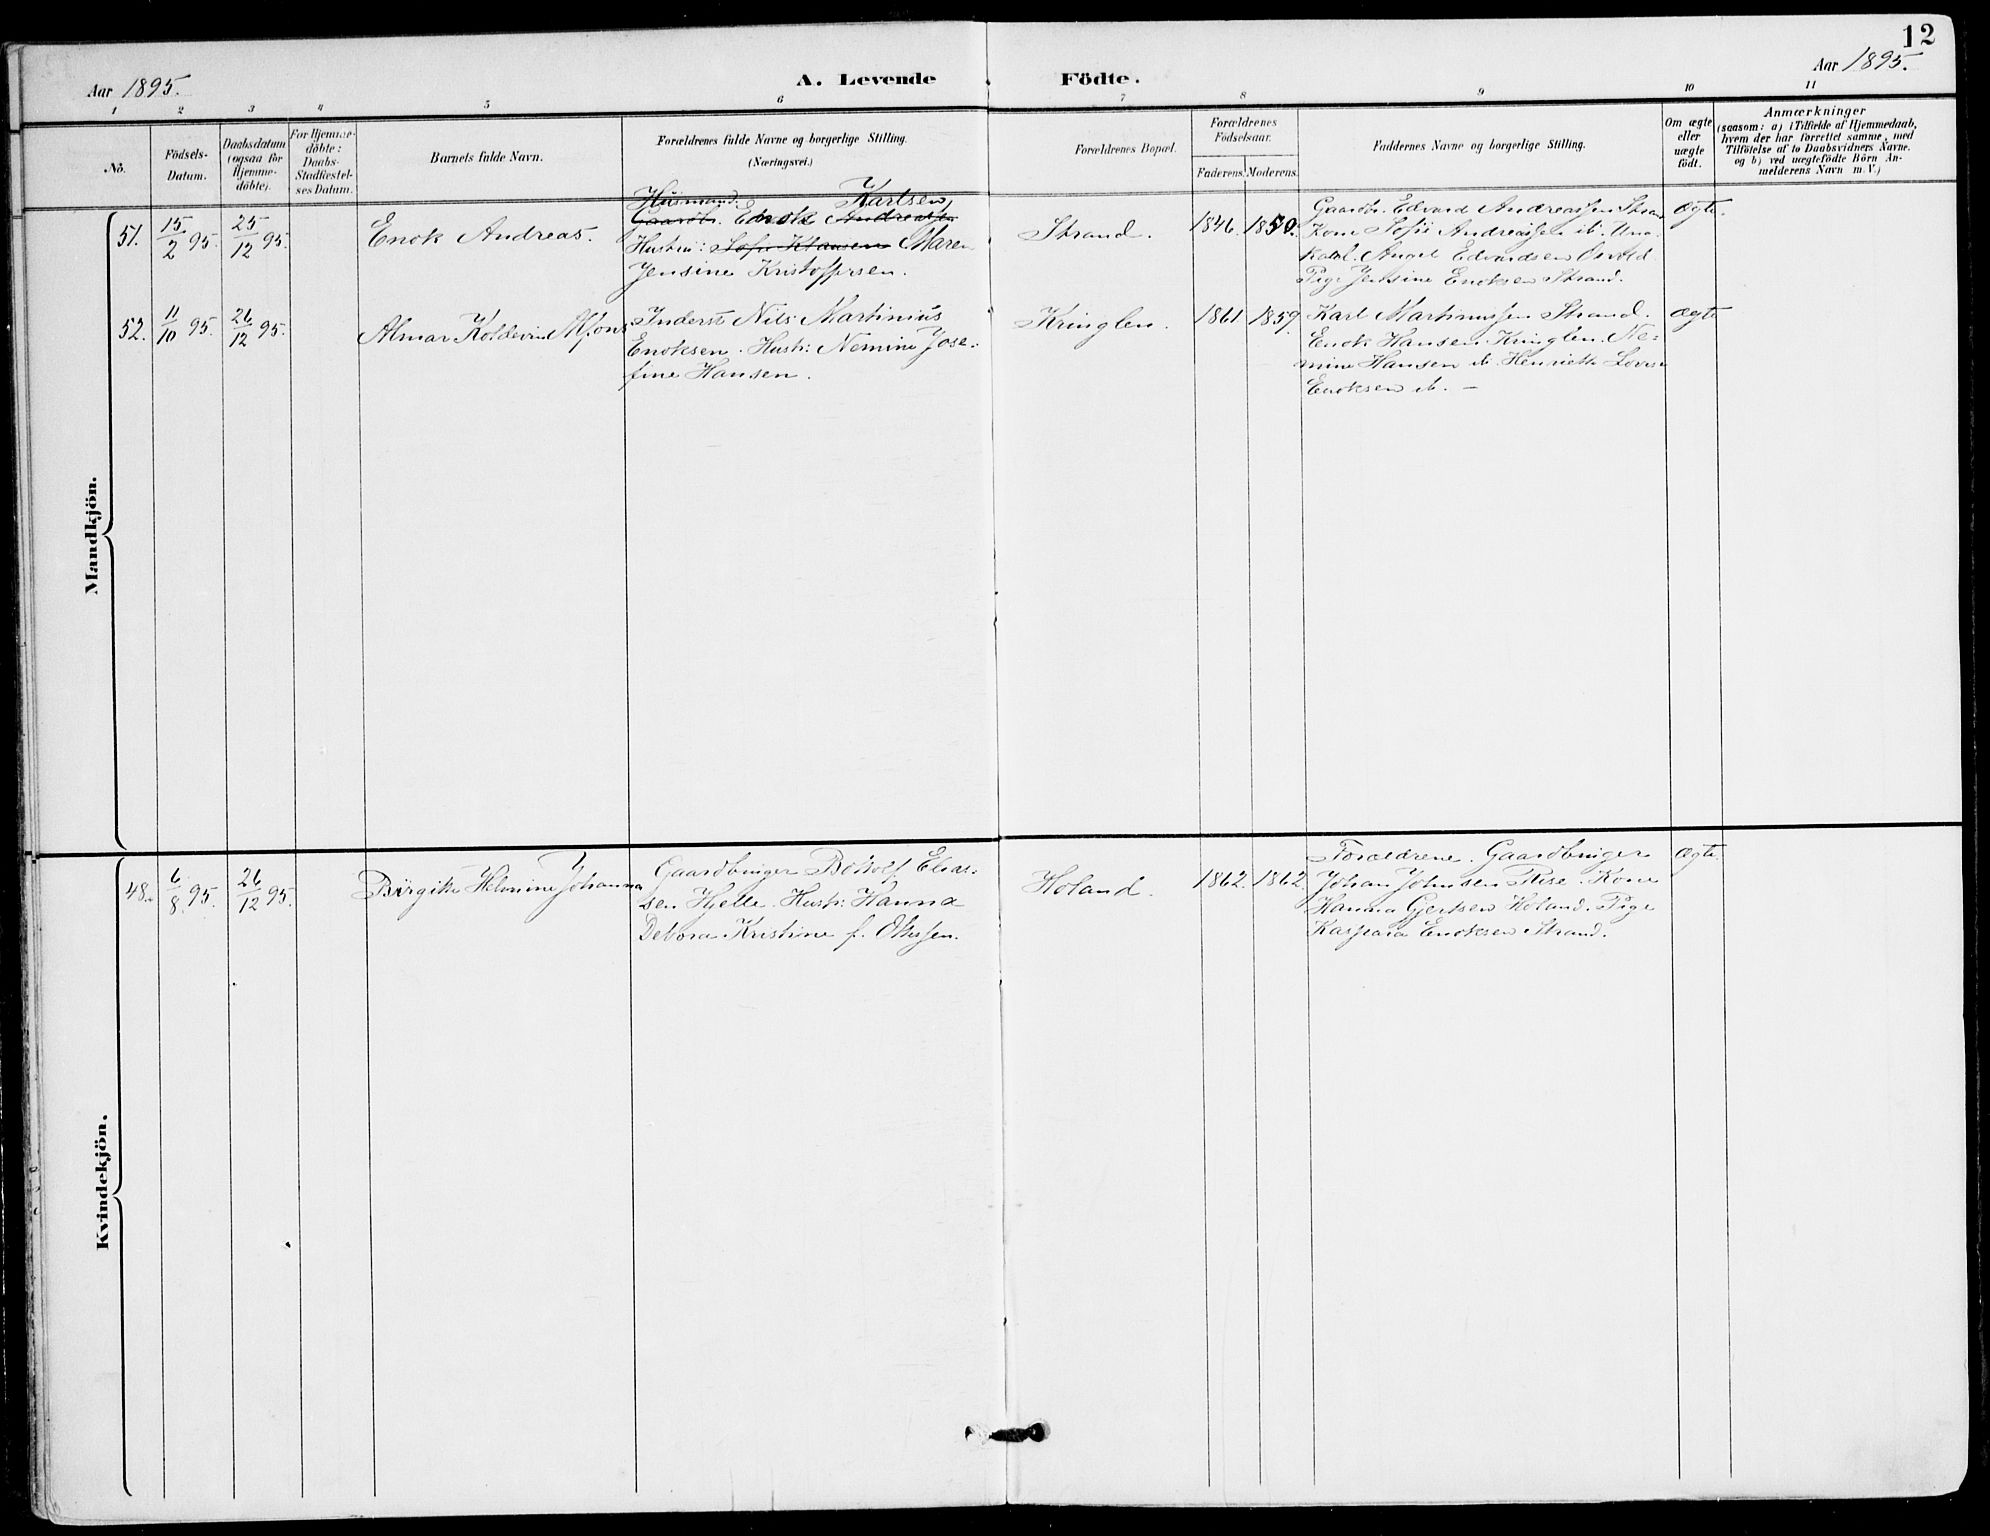 12
Aar 1895.
A. Levende Födte.
Aar 1895.
1 2 3 4 5 6 7 8 9 10 11
No.
Födsels-
Datum.
Daabsdatum
(ogsaa for
Hjemme-
döbte).
For Hjemme-
döbte:
Daabs-
Stadfæstel-
ses Datum.
Barnets fulde Navn.
Forældrenes fulde Navne og borgerlige Stilling.
(Næringsvei.)
Forældrenes Bopæl.
Forældrenes
Födselsaar.
Faderens. Moderens.
Faddernes Navne og borgerlige Stilling.
Om ægte
eller
uægte
födt.
Anmærkninger
(saasom: a) i Tilfælde af Hjemmedaab,
hvem der har forrettet samme, med
Tilföielse af to Daabsvidners Navne.
og b) ved uægtefödte Börn An-
melderens Navn m. V.)
Mandkjön.
51.
15/2 95.
25/12 95.
Enok Andreas.
Husmand. Karlsen,
Gaardbr. Enok Andreassen
Hustru: Sofie Klausen Maren
Jensine Kristoffersen.
Strand.
1846. 1850.
Gaardbr. Edvard Andreassen Strand
Kone Sofie Andreassen ib. Una-
Edvardsen Osvold
Pige Jensine Enoksen Strand.
Ægte.
52.
11/10 95.
26/12 95.
Almar Koldevin Alfons
Inderst Nils Martinius
Enoksen. Hustr: Nemine Jose-
fine Hansen.
Kringlen.
1861 1859.
Karl Martinussen Strand.
Enok Hansen Kringlen. Ne-
mine Hansen ib. Henriette Lovise
Enoksen ib. —
Ægte
Kvindekjön.
48.
6/8 95.
26/12 95.
Birgitte Helmine Johanna
Gaardbruger Bottolf Elias-
sen Hjelle. Hustr: Hanna
Debora Kristine f. Ottessen.
Holand.
1862. 1862.
Forældrene. Gaardbruger
Johan Johnsen Rise. Kone
Hanna Gjertsen Holand. Pige
Kaspara Enoksen Strand.
Ægte